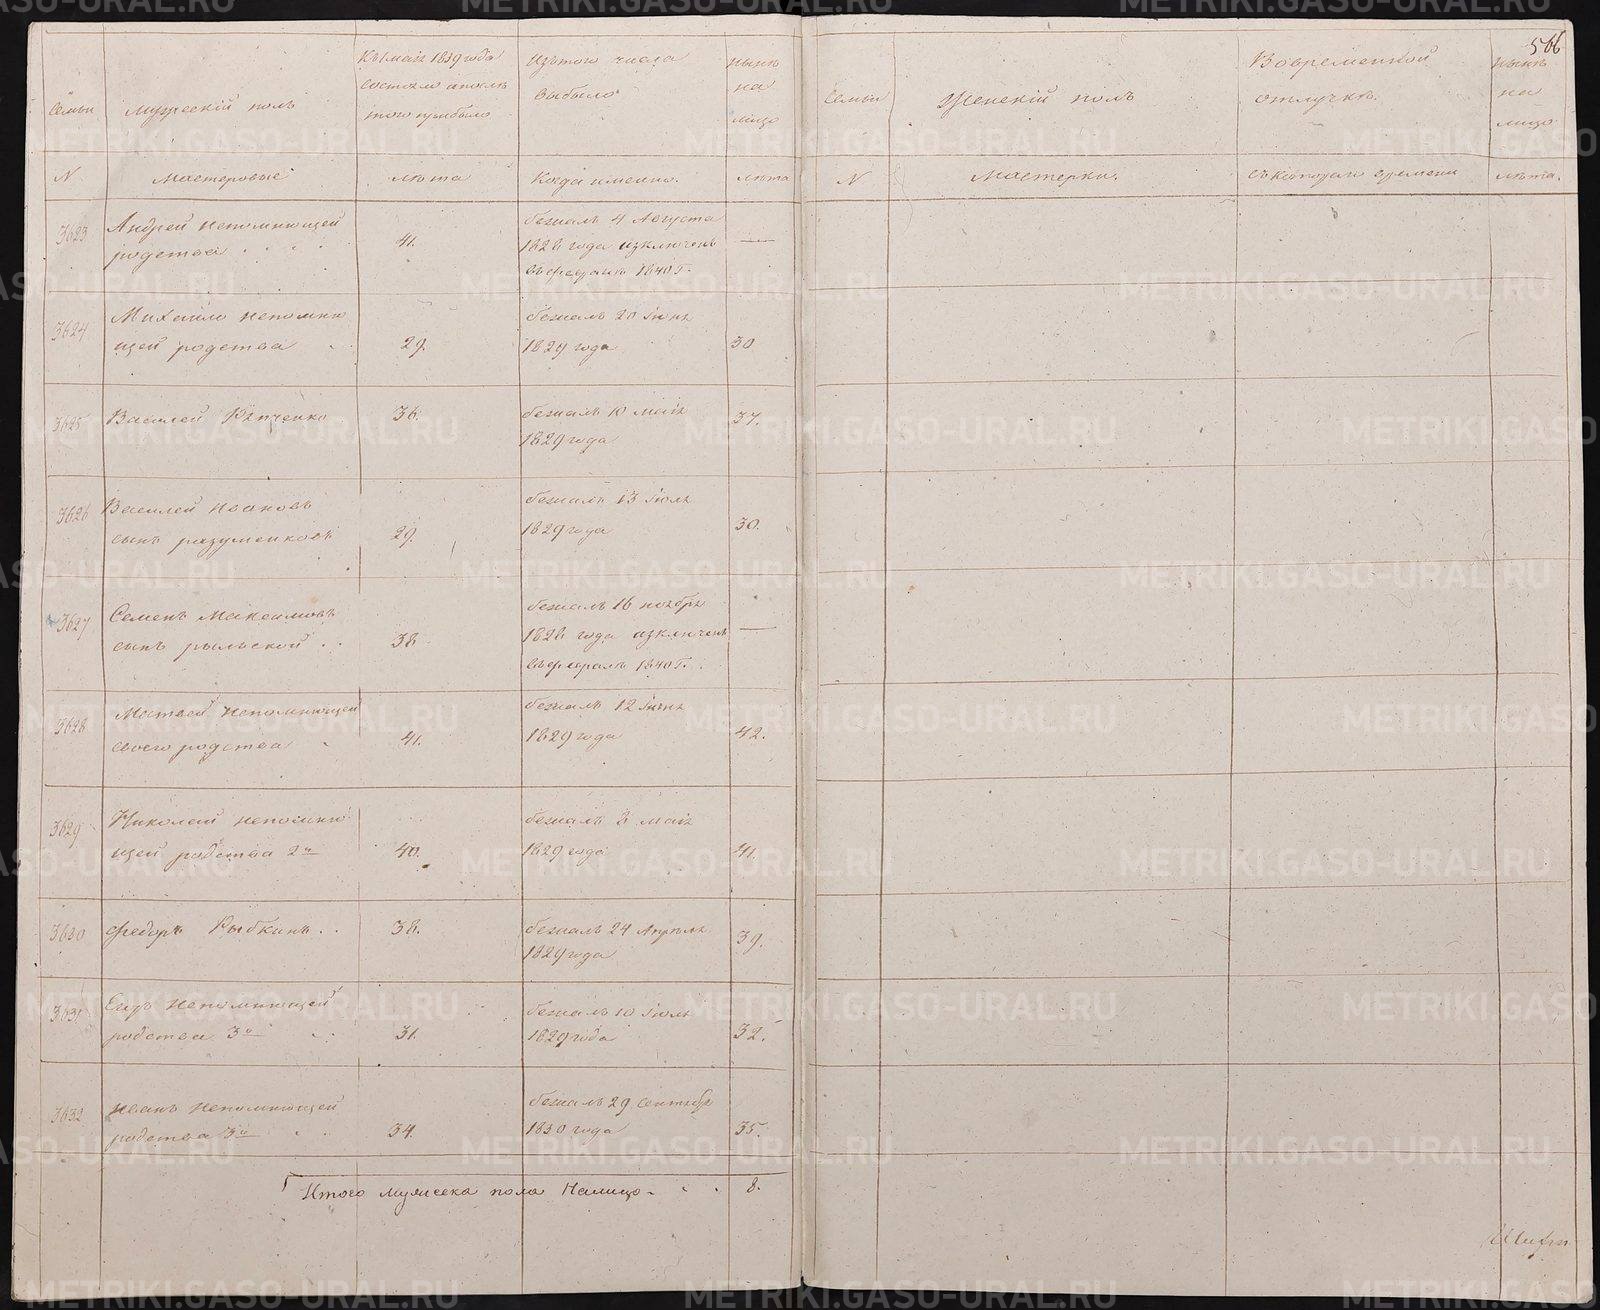 566
Семьи
мужескій полъ
Къ маію 1839 года
состояло и послѣ
того прибыло
Изътого числа
выбыло
нынѣ
на
лицо
Семьи
Женскій полъ
Вовременной
отлучкѣ.
нынѣ
на
лицо
N
Мастеровые
лѣта
Когда именно.
лѣта
N
Мастерки.
съ котораго времени
лѣта.
3623
Андрей непомнющей
родства
41.
бежалъ 4 Августа
1828 года изключенъ
въ февралѣ 1840 г.
—
3624
Михайло непомню
щей родства
29.
бежалъ 20 іюня
1829 года
30
3625
Василей Рѣпченко
36.
бежалъ 10 маія
1829 года
37.
3626
Василей Ивановъ
сынъ разуменковъ
29.
бежалъ 13 іюля
1829 года
30.
3627
Семенъ Максимовъ
сынъ рыльской
38
бежалъ 16 ноября
1828 года изключенъ
въ февралѣ 1840 г.
—
3628
Матвей Непомнющей
своего родства
41.
бежалъ 12 іюня
1829 года
42.
3629
Николай непомню
щей родства 2й
40.
бежалъ 8 маія
1829 года
41.
3630
Федоръ Рыбкинъ
38.
бежалъ 24 Апрѣля
1829 года
39.
3631
Егоръ Непомнющей
родства 3й
31.
бежалъ 10 іюля
1829 года
32.
3632
Иванъ Непомнющей
родства 3й
34.
бежалъ 29 сентября
1830 года
35.
Итого мужеска пола Налицо
8.
METRIKI.GASO-URAL.RU